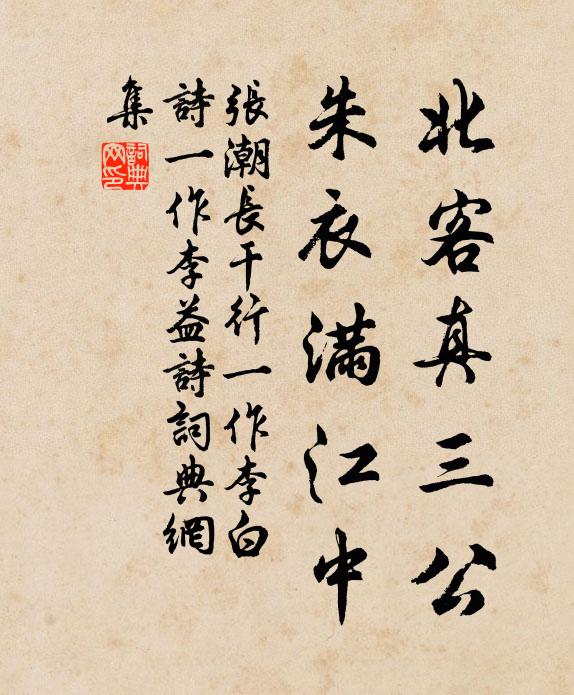 北客真三公
朱衣滿江中
張潮長干行一作李白
詩一作李益詩詞典網
集
詞典
网印